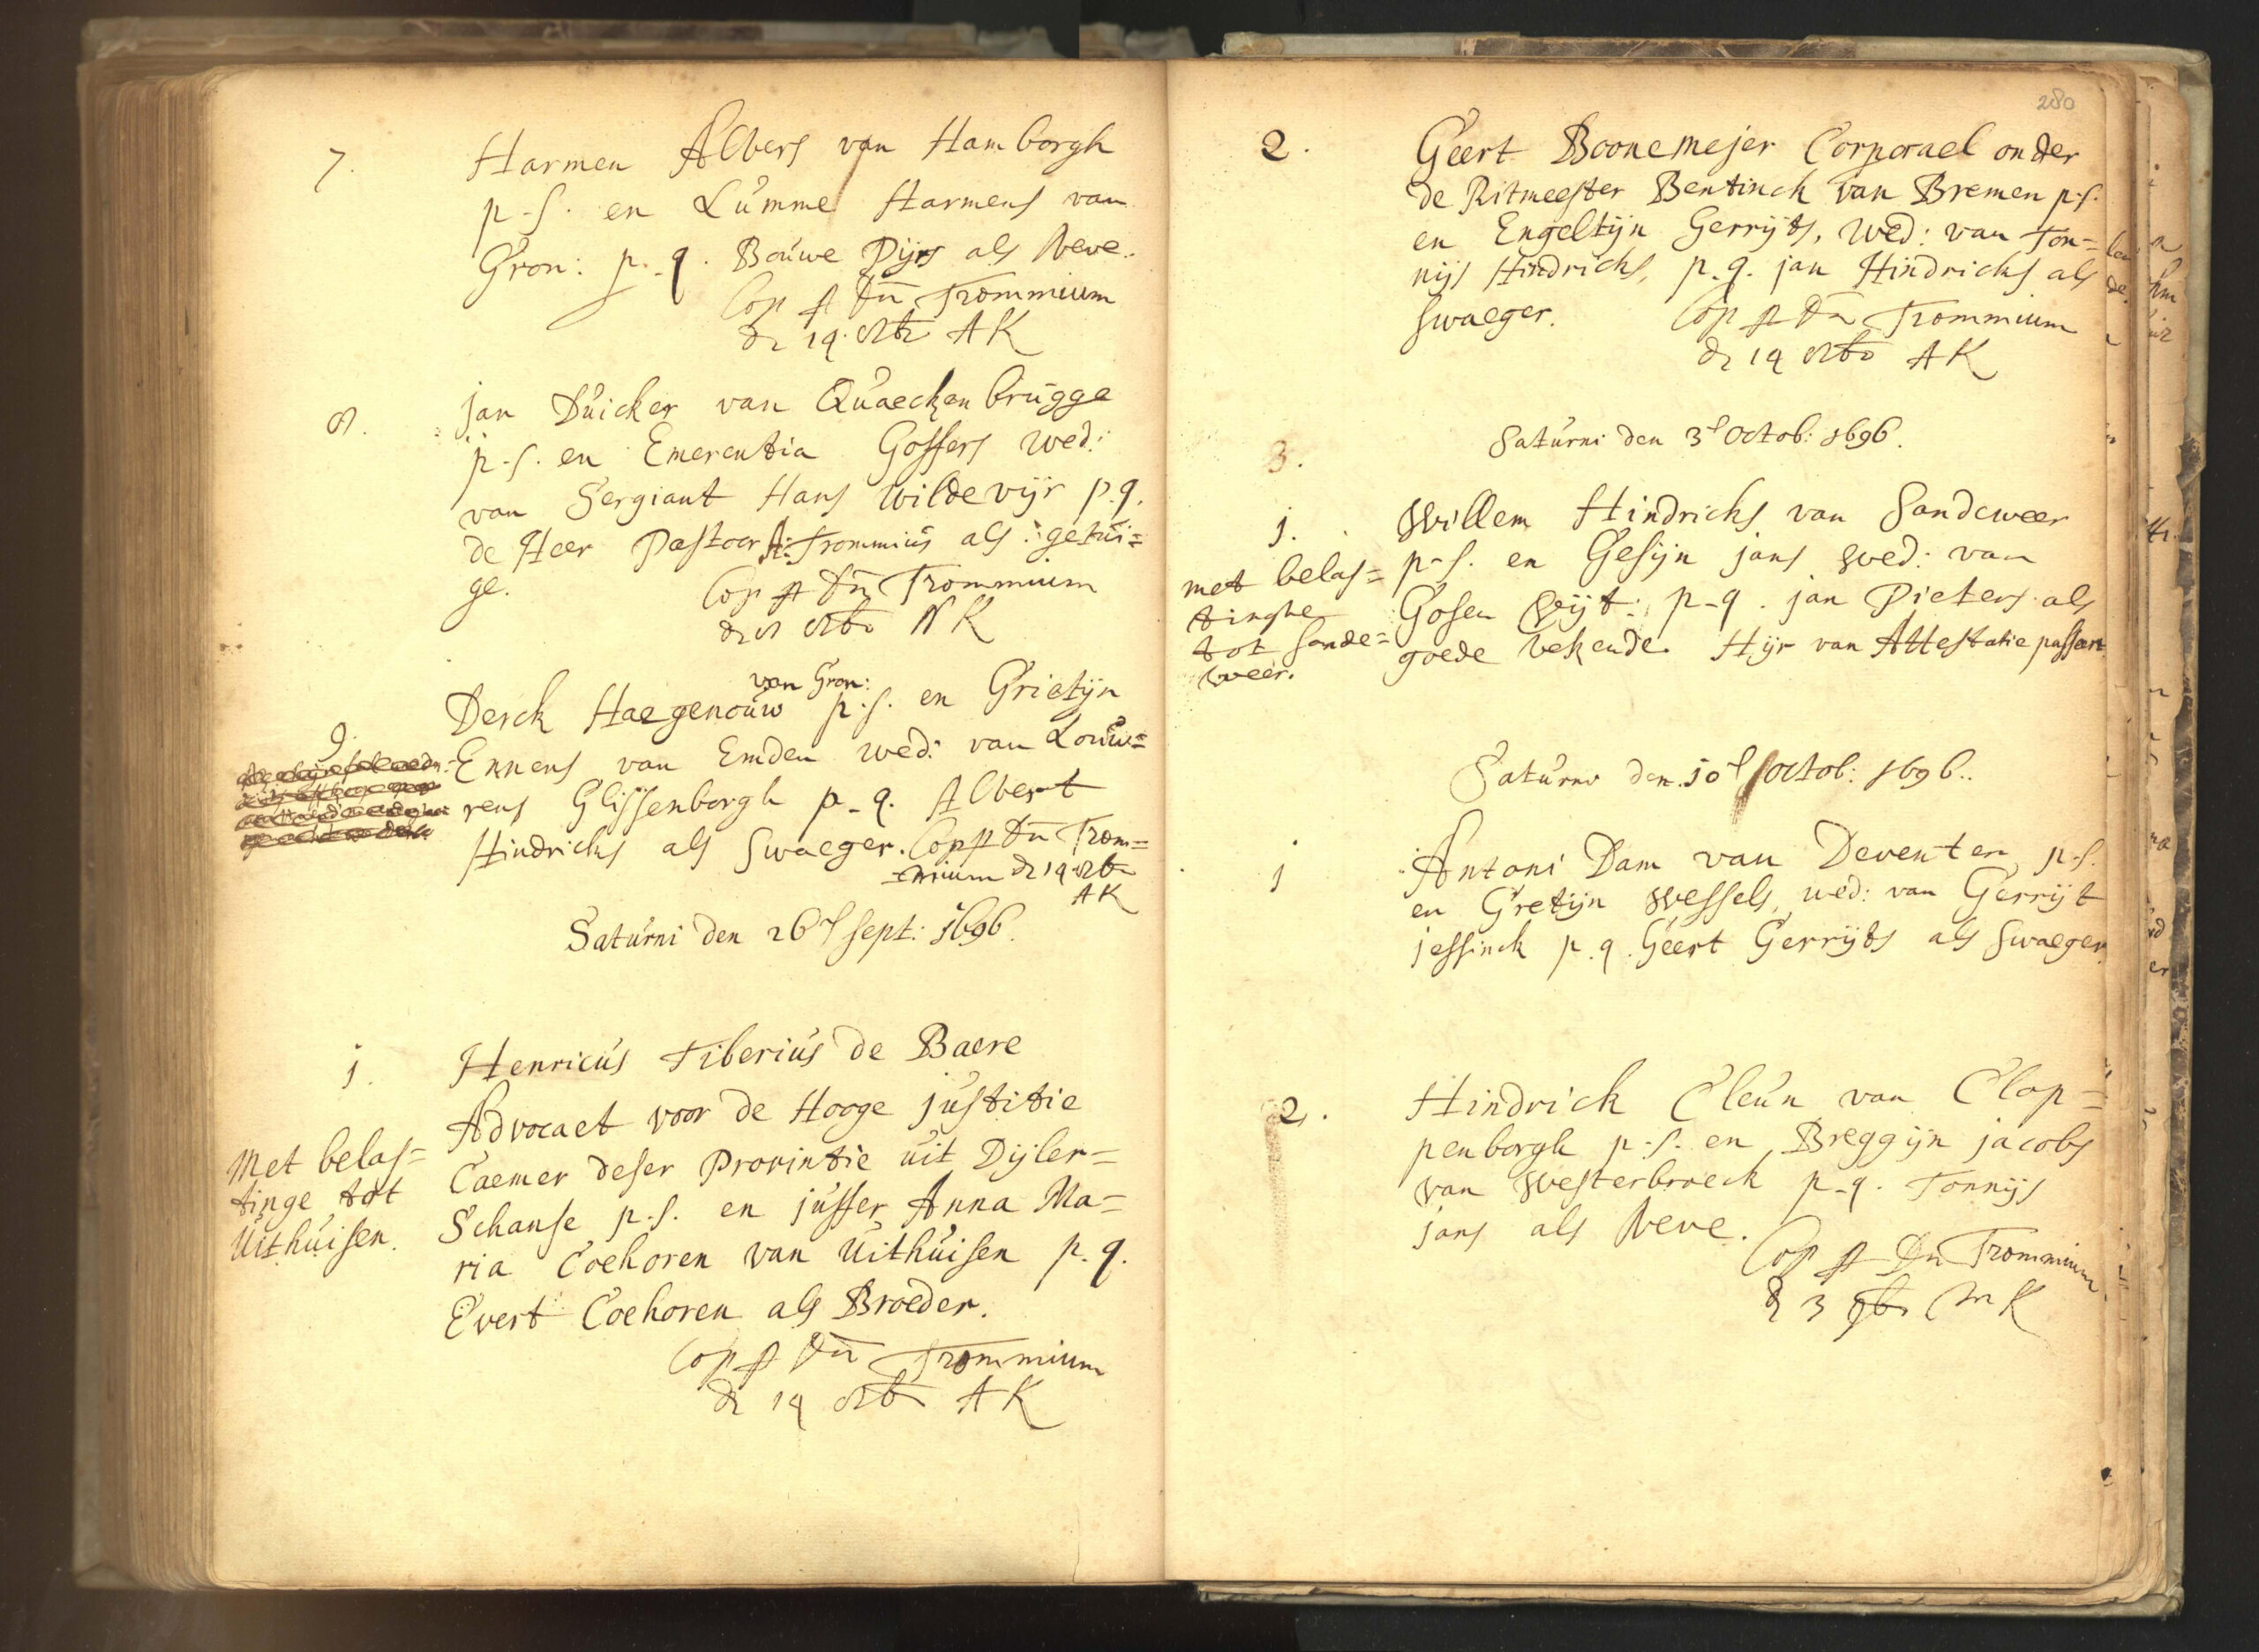 7. Harmen Albers van Hamborgh
p.s. en Lumme Harmens van
Gron: p.q. Bouwe Pijrs als Neve.
Cop p Dn Trommium
d 19. 8tb AK
8. jan Duicker van Quaeckenbrugge
p.s. en Emerentia Gossers wed:
van Sergiant Hans Wildevijr p.q.
de Heer Pastoor A: Trommius als getui=
ge.
Cop p Dn Trommium
8tbr K
van Gron:
9. Derck Haegenouw p.s. en Grietijn
Ennens van Emden wed: van Louw=
rens Glissenborgh p.q. Albert
Hindricks als Swaeger. Cop p Dn Trom=
mium d 19 8tb
AK
Saturni den 26 sept: 1696.
1. Henricus Tiberius de Baere
Advocaet voor de Hooge justitie
Caemer deser Provintie uit Dijler=
Schanse p.s. en juffer Anna Ma=
ria Coehoren van Uithuisen p.q.
Evert Coehoren als Broeder.
Met belas=
tinge tot
Uithuisen.
Cop p Dn Trommium
d 19 8tb AK
280
2. Geert Boonemejer Corporael onder
de Ritmeester Bentinck van Bremen p.s.
en Engeltijn Gerrijts, wed: van Ton=
nijs Hindricks, p.q. jan Hindricks als
Swaeger.
Cop p Dn Trommium
d 19 8tbr AK
Saturni den 3 Octob: 1696.
3.
1. Willem Hindricks van Sandeweer
p.s. en Gesijn jans wed: van
Gosen Wijt: p.q. jan Pieters als
goede bekende. Hijr van Attestatie passert
met belas=
tinghe
tot Sande=
weer.
Saturno den 10 Octob: 1696.
1 Antoni Dam van Deventer p.s.
en Gretijn Wessels, wed: van Gerrijt
jessinck p.q. Geert Gerrijts als Swaeger.
2. Hindrick Cleun van Clop=
penborgh p.s. en Breggijn jacobs
van Westerbroeck p.q. Tonnijs
jans als Neve.
Cop p Dn Trommium
d 3 9br K